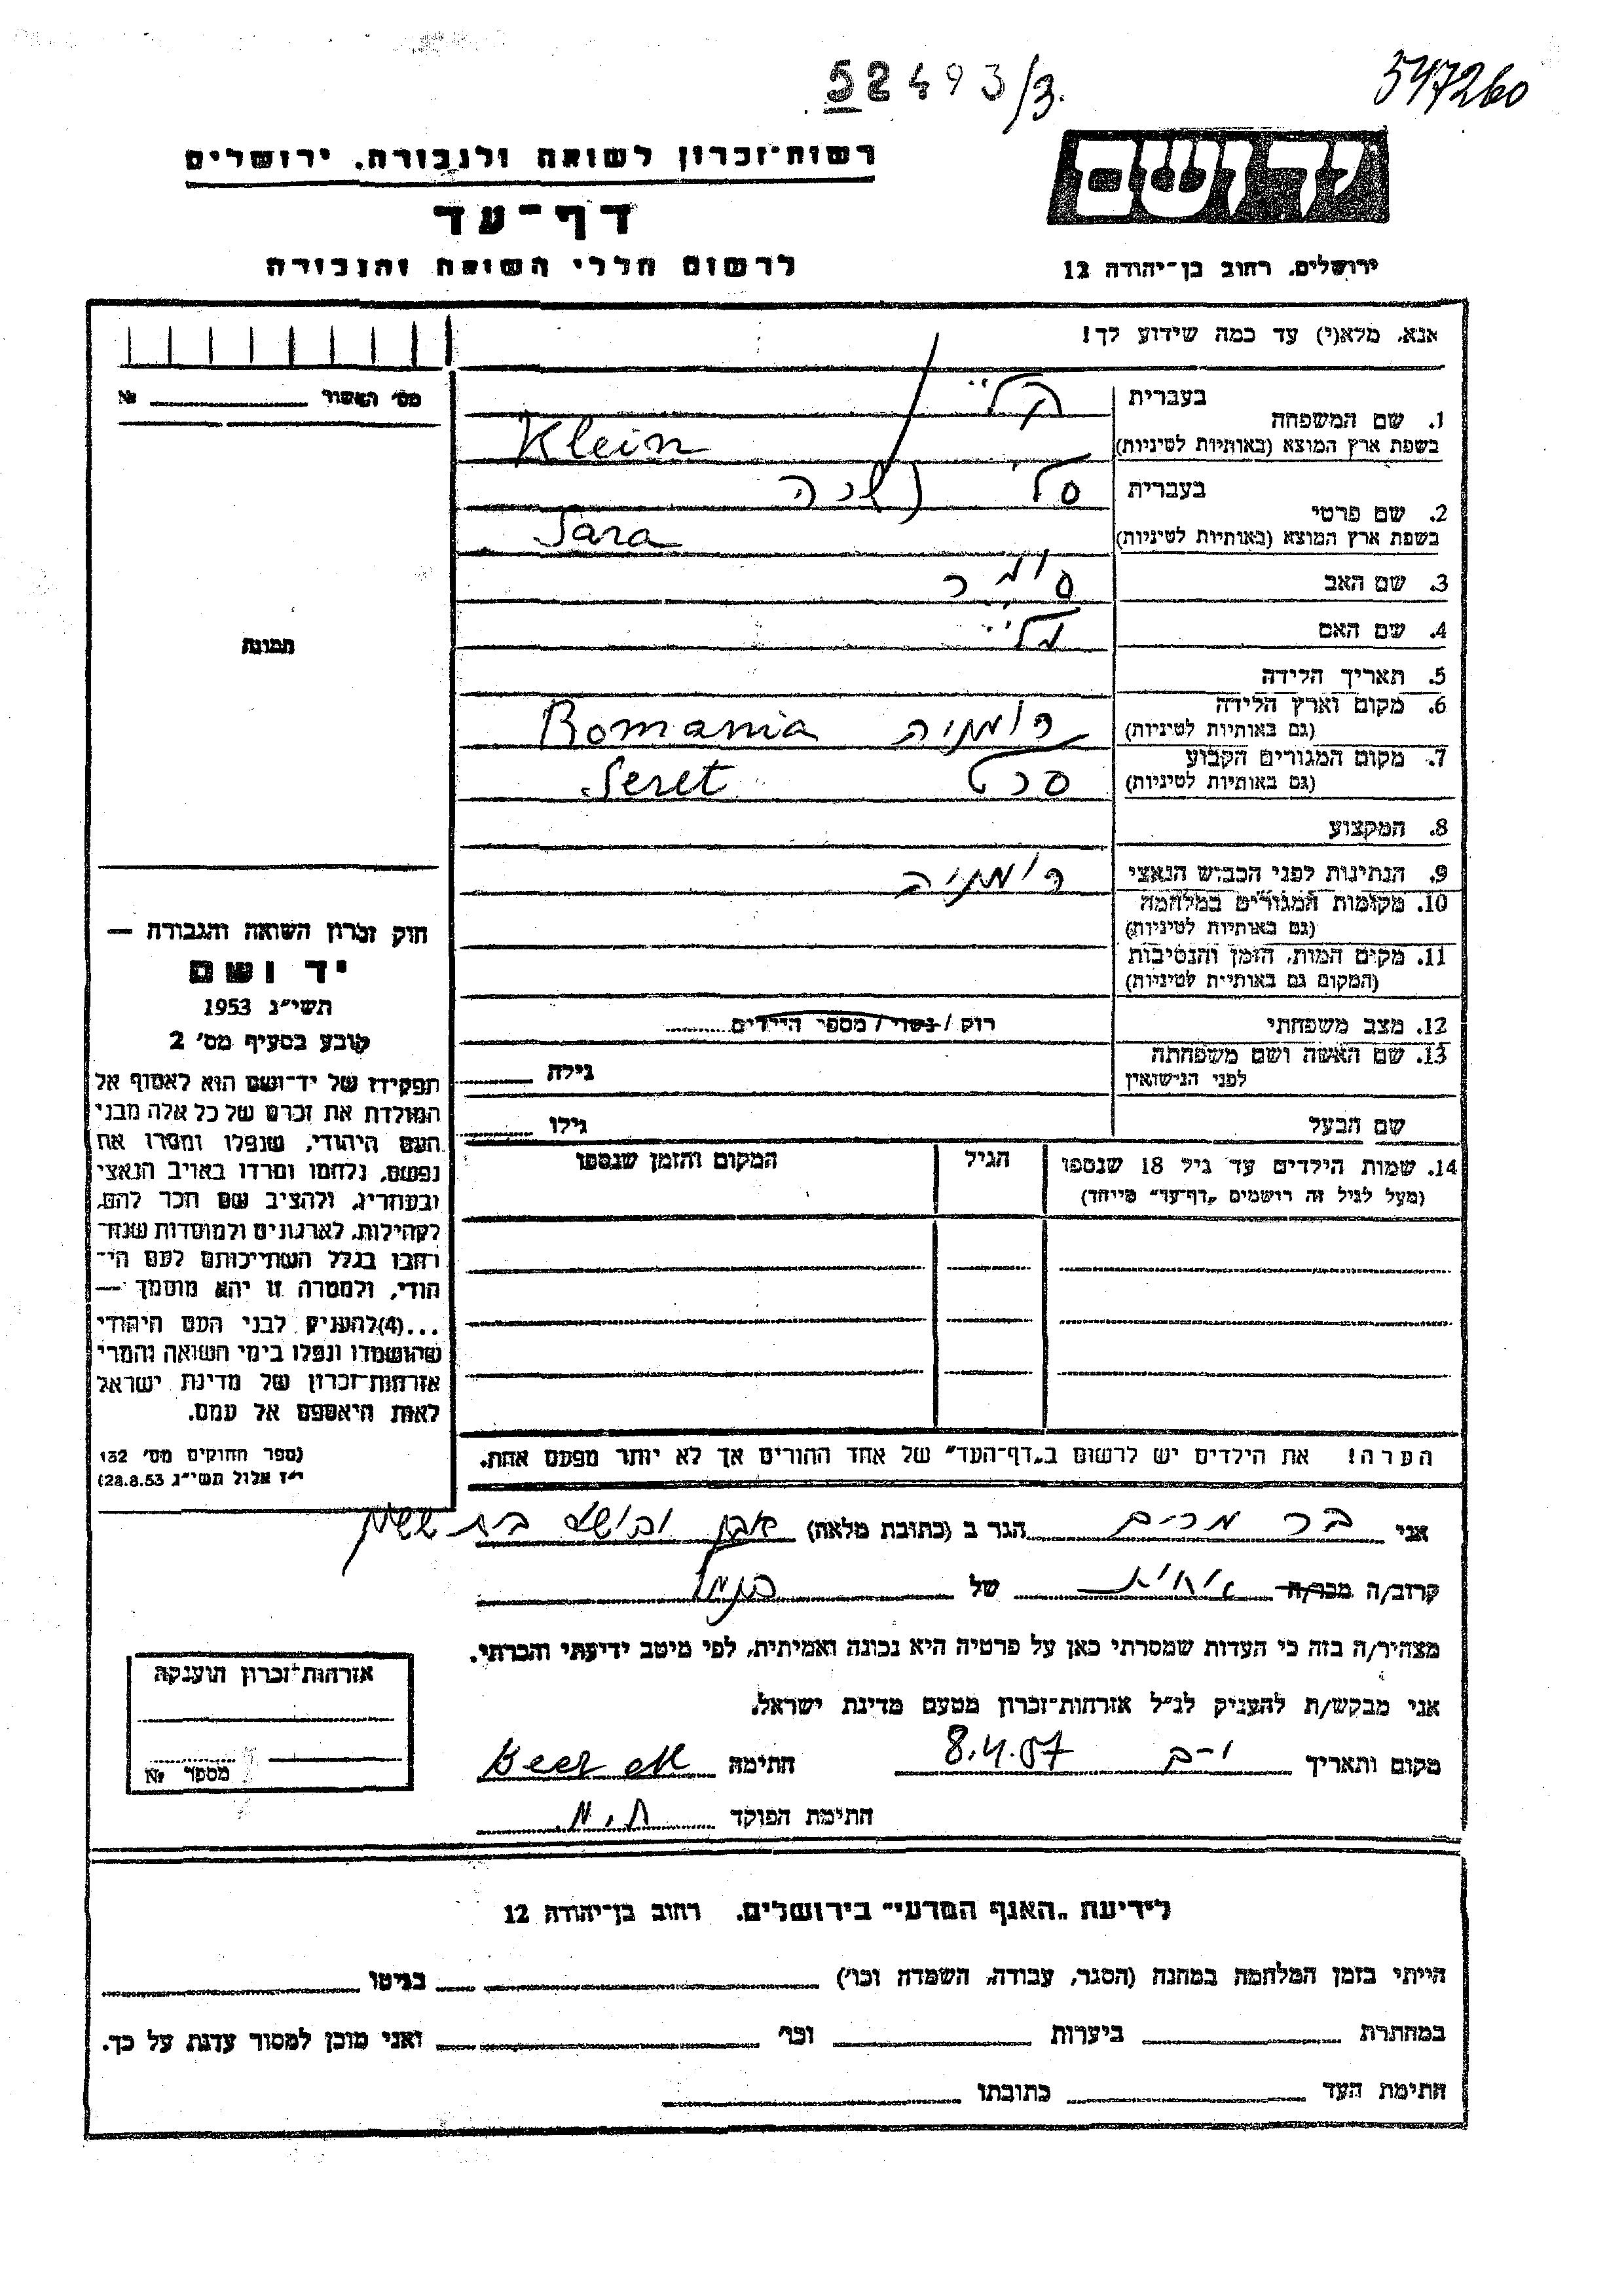 52493/3.
547260
רשות־זכרון לשואה ולגבורה, ירושלים
דף־עד
לרשום חללי השואה והגבורה
ידושם
ירושלים, רחוב בן־יהודה 12
אנא, מלא(י) עד כמה שידוע לך!
מס' האשור № 
1. שם המשפחה
בעברית קליין
בשפת ארץ המוצא (באותיות לטיניות) Klein
2. שם פרטי
בעברית
בשפת ארץ המוצא (באותיות לטיניות) Sara
3. שם האב
4. שם האם
5. תאריך הלידה
6. מקום וארץ הלידה רומניה Romania
(גם באותיות לטיניות)
7. מקום המגורים הקבוע סרט Seret
(גם באותיות לטיניות)
8. המקצוע
9. הנתינות לפני הכבוש הנאצי רומניה
10. מקומות המגורים במלחמה
(גם באותיות לטיניות)
11. מקום המות, הזמן והנסיבות
(המקום גם באותיות לטיניות)
12. מצב משפחתי רוק / נשוי / מספר הילדים
13. שם האשה ושם משפחתה גילה
לפני הנישואין
שם הבעל גילו
14. שמות הילדים עד גיל 18 שנספו
(מעל לגיל זה רושמים „דף־עד" מייחד)
הגיל
המקום והזמן שנספו
הערה! את הילדים יש לרשום ב„דף־העד" של אחד ההורים אך לא יותר מפעם אחת.
תמונה
חוק זכרון השואה והגבורה —
יד ושם
תשי"ג 1953
קובע בסעיף מס' 2
תפקידו של יד־ושם הוא לאסוף אל
המולדת את זכרם של כל אלה מבני
העם היהודי, שנפלו ומסרו את
נפשם, נלחמו ומרדו באויב הנאצי
ובעוזריו, ולהציב שם וזכר להם,
לקהילות, לארגונים ולמוסדות שנח־
רבו בגלל השתייכותם לעם הי־
הודי, ולמטרה זו יהא מוסמך —
...(4)להעניק לבני העם היהודי
שהושמדו ונפלו בימי השואה והמרי
אזרחות־זכרון של מדינת ישראל
לאות היאספם אל עמם.
(ספר החוקים מס' 132
י"ז אלול תשי"ג 28.8.53)
אני בר מרים הגר ב (כתובת מלאה) בת
קרוב/ה מכר/ה של
מצהיר/ה בזה כי העדות שמסרתי כאן על פרטיה היא נכונה ואמיתית, לפי מיטב ידיעתי והכרתי.
אני מבקש/ת להעניק לנ"ל אזרחות־זכרון מטעם מדינת ישראל.
מקום ותאריך י-ם 8.4.57 חתימה Beer M
חתימת הפוקד
אזרחות־זכרון הוענקה
מספר №
לידיעת „האגף המדעי" בירושלים, רחוב בן־יהודה 12
הייתי בזמן המלחמה במחנה (הסגר, עבודה, השמדה וכו') בגיטו
במחתרת ביערות וכו' ואני מוכן למסור עדות על כך.
חתימת העד כתובתו